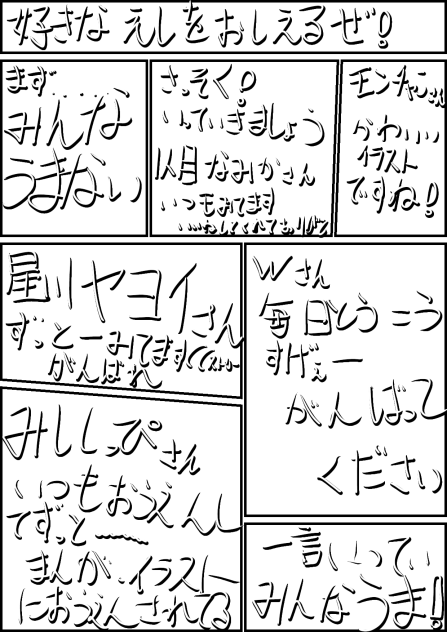 好きなえしをおしえるぜ!
まず....
みんな
うまない
さっそく!
いっていきましょう
1人目なみかさん
いつもみてます
いいねしとくれてありがと
モンチャンさん
かわいい
イラスト
ですね!
星川ヤヨイさん
ずっとーみてます
がんばれ
Wさん
毎日とうこう
すげぇー
がんばって
ください
みししっぴさん
いつもおうえんし
てずっと〜〜
まんが、イラスト
におうえんされてる
一言いってい
みんなうま!